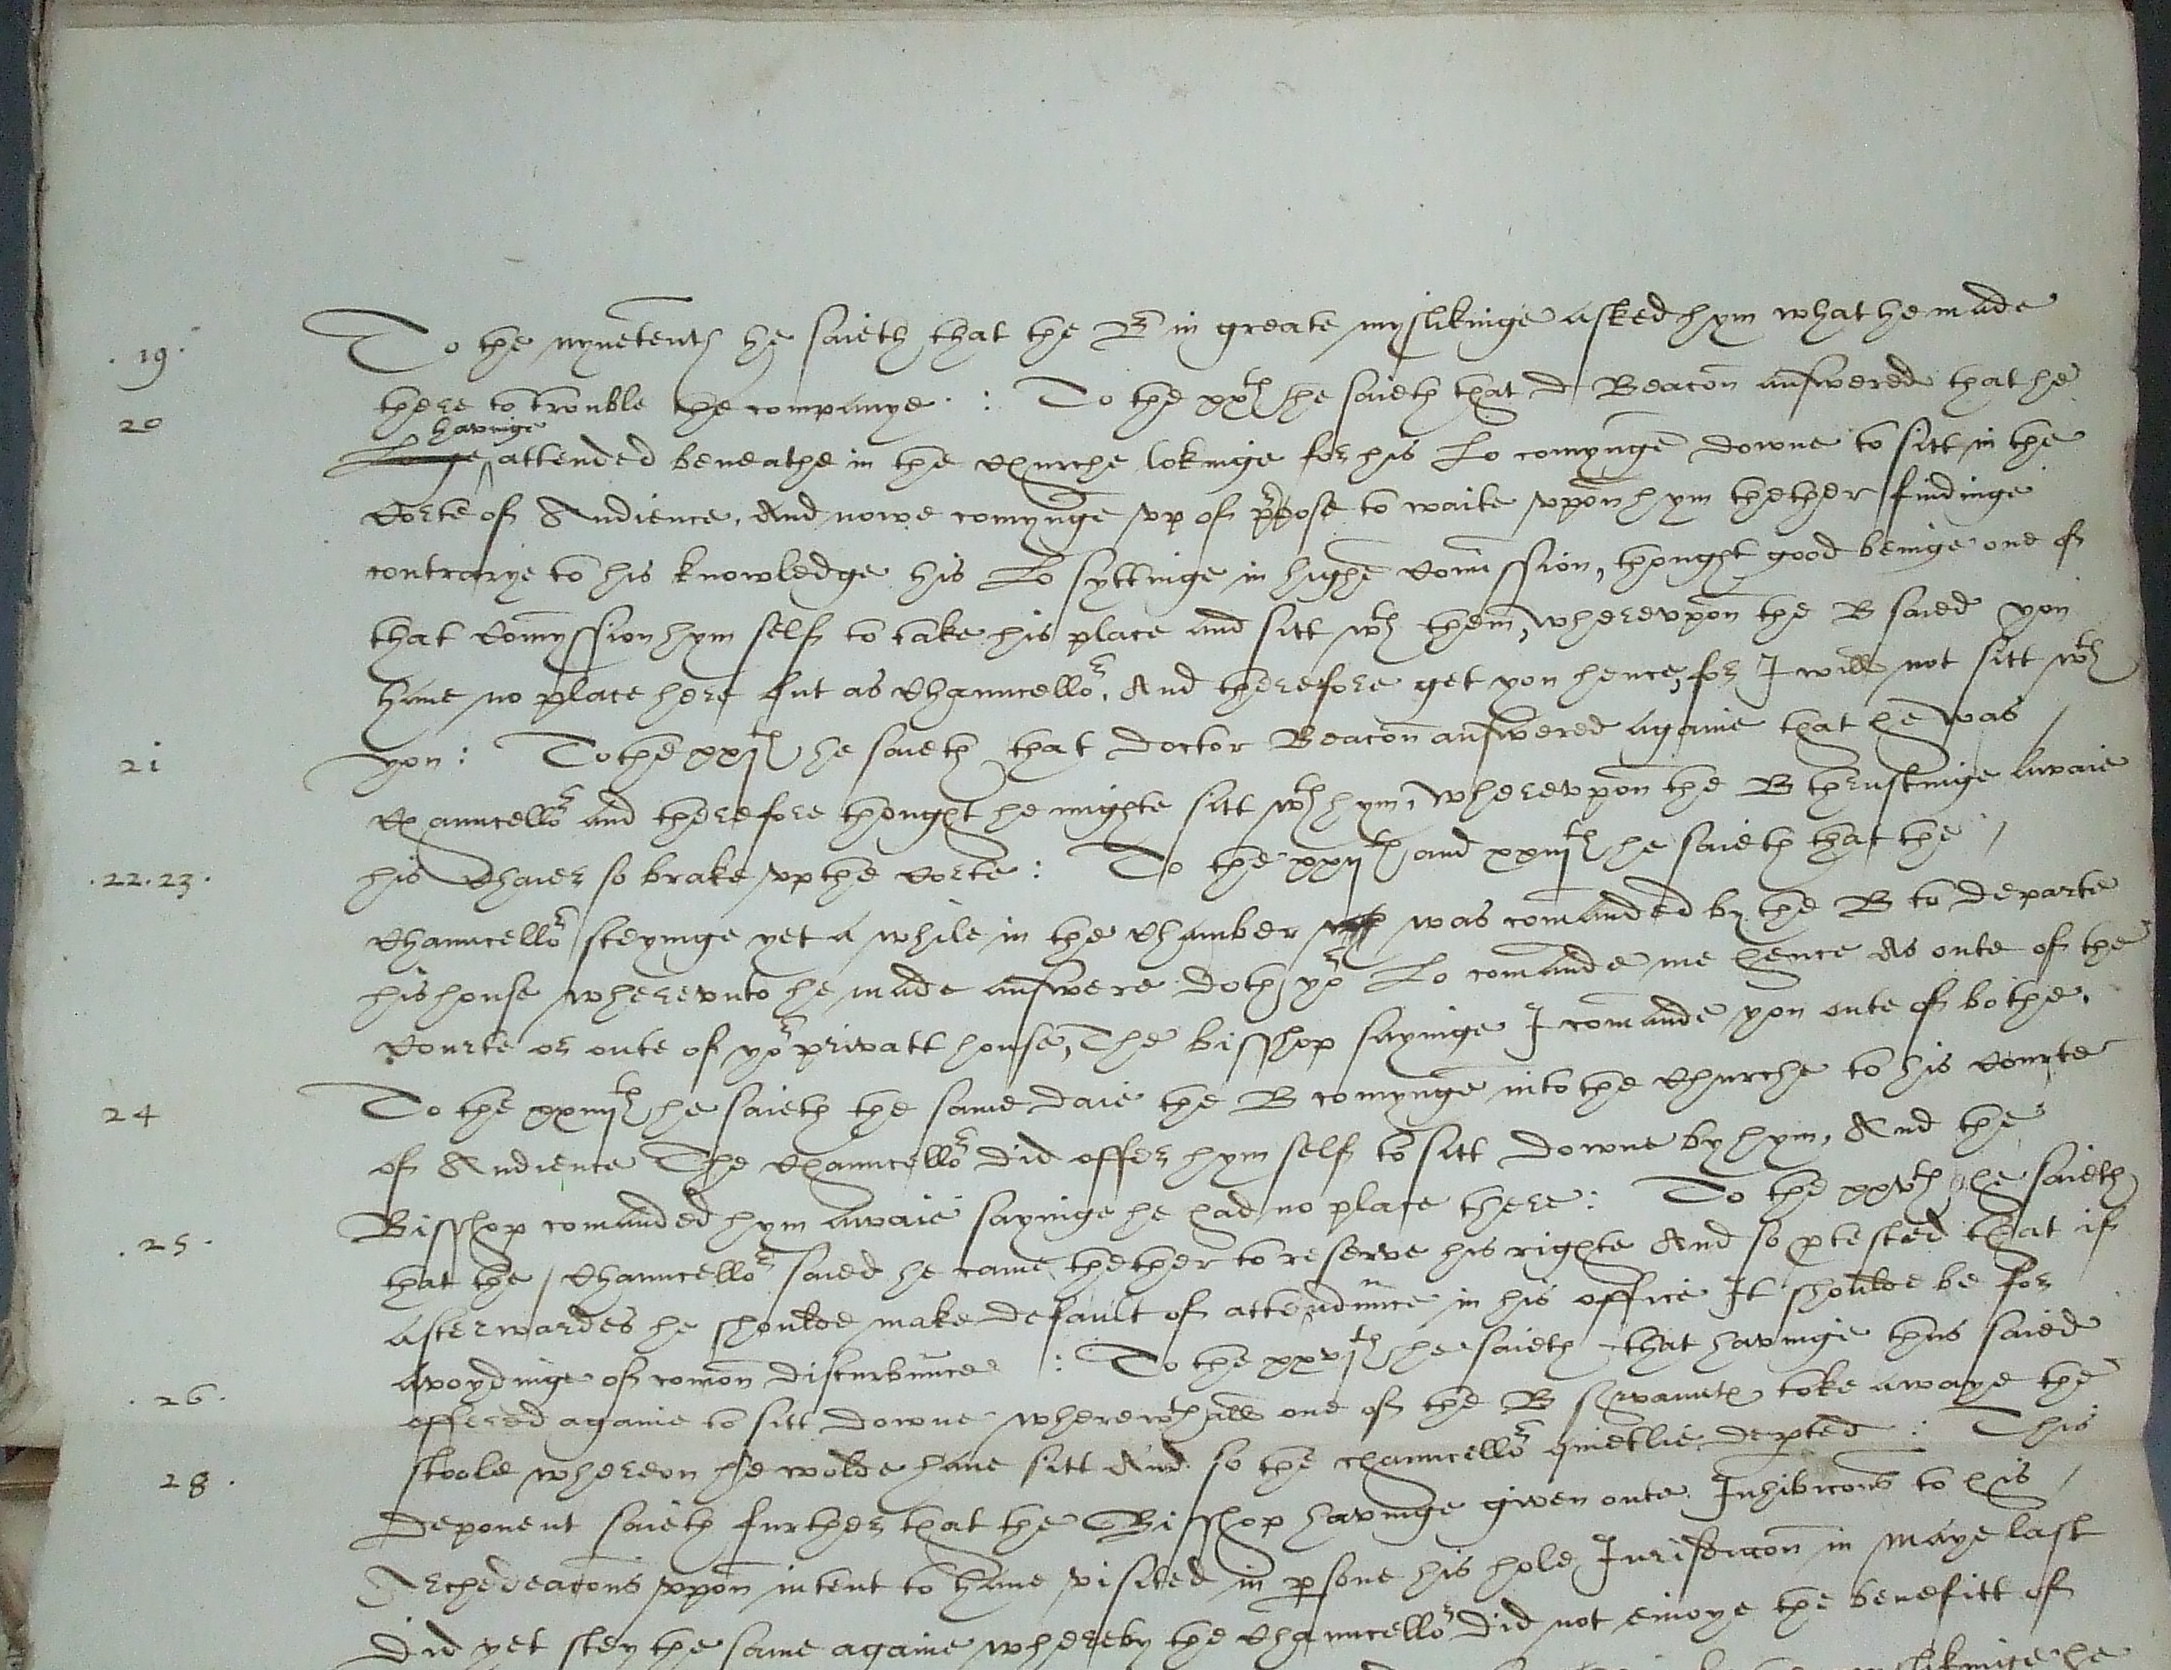 .19. To the nynetenth he saieth that the B in greate myslikinge asked hym what he made
20 there to trouble the companye . : To the xxth he saieth that d Beacon answered that he
havinge
attended beneathe in the Churche lokinge for his Lo comynge downe to sitt in the
Corte of Audience, And nowe comynge vp of p'pose to waite vppon hym thether findinge
contrarye to his knowledge his Lo syttinge in highe Comission, thought good beinge one of
that Comyssion hym self to take his place and sitt wth them, wherevpon the B saied you
have no place here but as Chauncellor, And therefore get you hence, for I will not sitt wth
21 you : To the xxjth he saieth that doctor Beacon answered againe that he was
Chauncellor and therefore thought he mighte sitt wth hym, wherevpon the B thrustinge awaie
.22.23. his Chaier so brake vp the Corte : To the xxijth and xxiijth he saieth that the
Chauncellor steyinge yet a while in the Chamber was comanded by the B to departe
his house wherevnto he made answere doth yor Lo comande me hence As oute of the
Courte or oute of yor privatt house, The bisshop sayinge I comande you oute of bothe.
24 To the xxiiijth he saieth the same daie the B comynge into the Churche to his Courte
of Audience The Chauncellor did offer hym self to sitt downe by hym, And the
Bisshop comanded hym awaie sayinge he had no place there : To the xxvth he saieth
.25. that the Chauncellor saied he came thether to reserve his righte And so ptested that if
afterwardes he shoulde make default of attendance in his office It shoulde be for
avoydinge of comon disturbaunce : To the xxvjth he saieth that havinge thus saied
.26. offered againe to sitt downe wherewthall one of the B servauntes toke awaye the
stoole whereon he wolde have sitt And so the chauncellor quietlie depted : This
28. deponent saieth further that the Bisshop havinge given oute Inhibicons to his
Archedeacons vppon intent to have visited in psone his hole Jurisdiccon in Maye last
did yet stey the same againe whereby the Chauncellor did not enioye the benefitt of